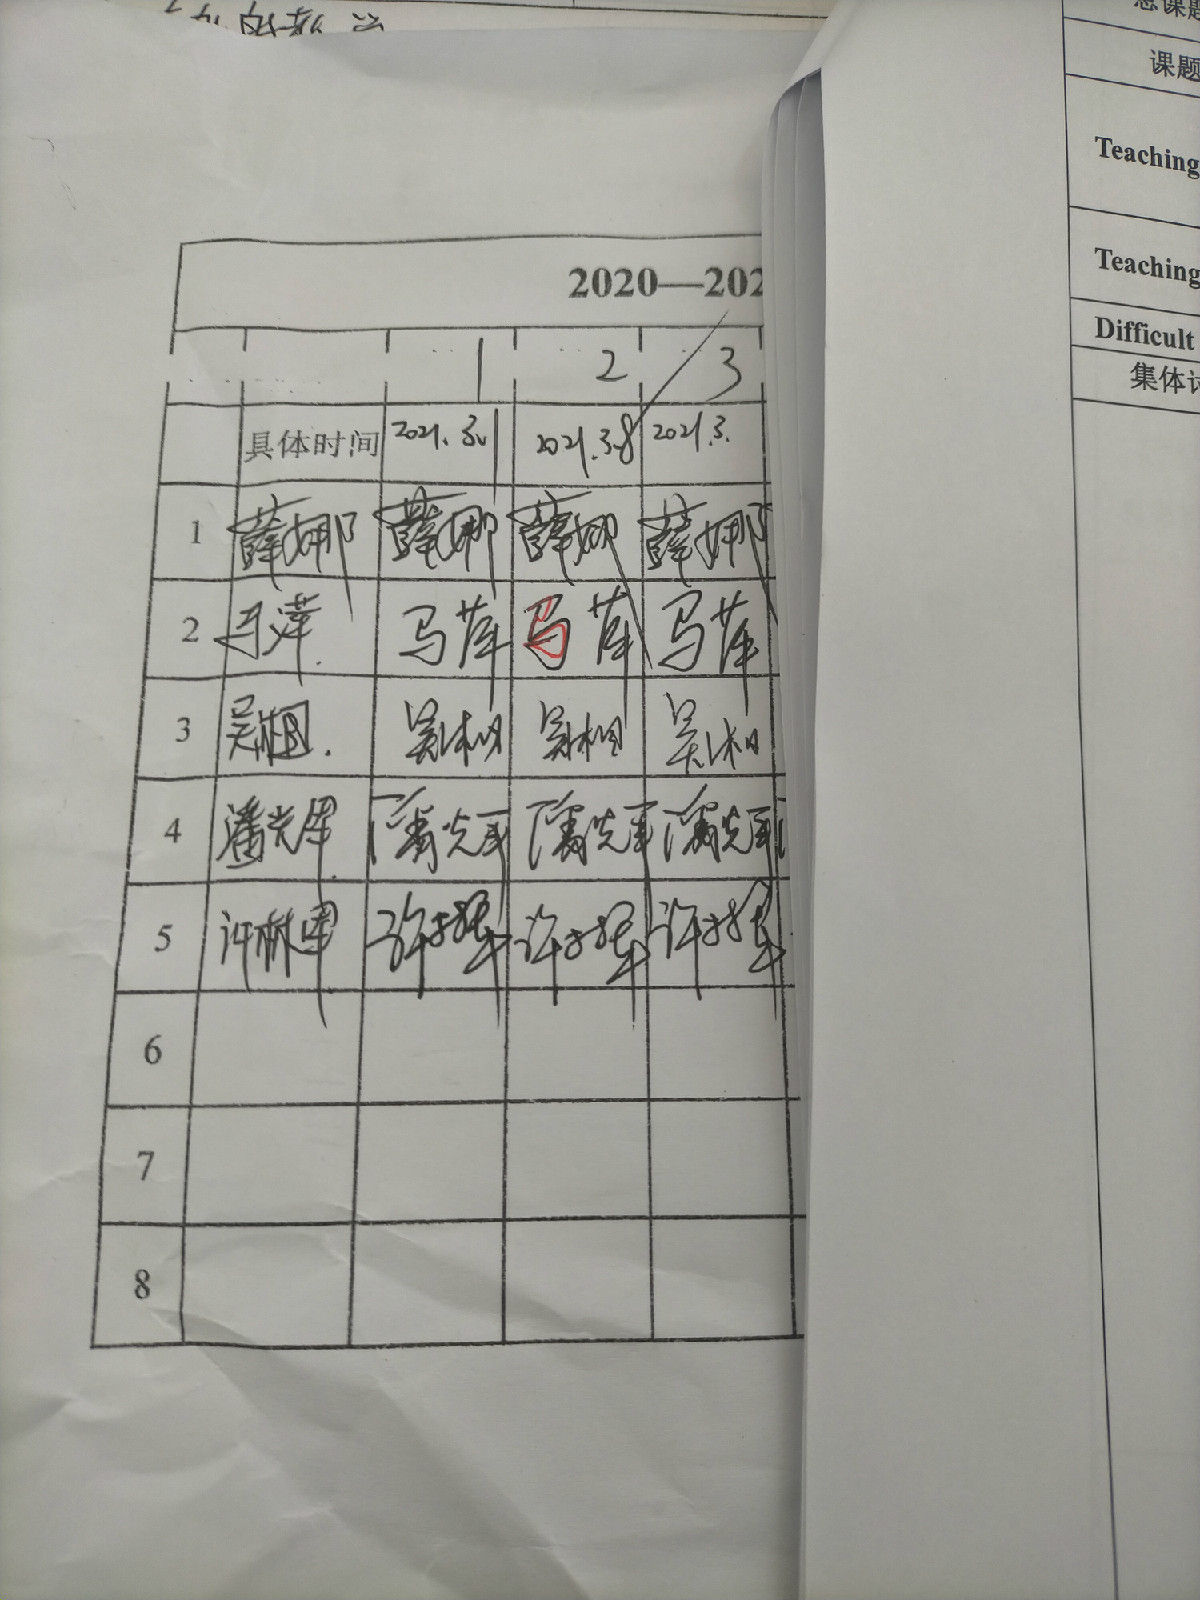 2020—202
1 2 3
具体时间 2021.3.1 2021.3.8 2021.3.
1 薛娜 薛娜 薛娜 薛娜
2 马萍 马萍 马萍 马萍
3 吴相 吴相 吴相 吴相
4 潘光军 潘光军 潘光军 潘光军
5 许林军 许林军 许林军 许林军
6
7
8
总课题
课题
Teaching
Teaching
Difficult
集体讨